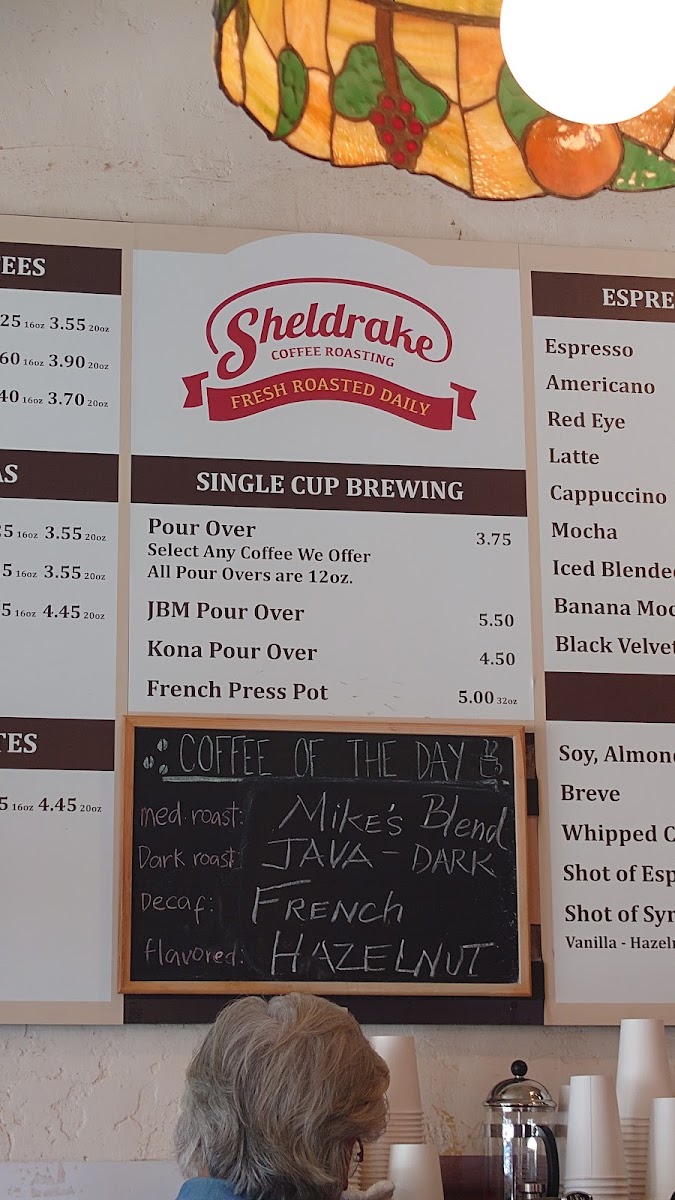 EES
25 16oz 3.55 20oz
60 16oz 3.90 20oz
40 16oz 3.70 20oz
AS
5 16oz 3.55 20oz
5 16oz 3.55 20oz
5 16oz 4.45 20oz
TES
5 16oz 4.45 20oz
Sheldrake
COFFEE ROASTING
FRESH ROASTED DAILY
SINGLE CUP BREWING
Pour Over 3.75
Select Any Coffee We Offer
All Pour Overs are 12oz.
JBM Pour Over 5.50
Kona Pour Over 4.50
French Press Pot 5.00 32oz
COFFEE OF THE DAY
med. roast: Mike's Blend
Dark roast: JAVA - DARK
Decaf: FRENCH
flavored: HAZELNUT
ESPRE
Espresso
Americano
Red Eye
Latte
Cappuccino
Mocha
Iced Blended
Banana Moc
Black Velvet
Soy, Almon
Breve
Whipped C
Shot of Esp
Shot of Syr
Vanilla - Hazeln